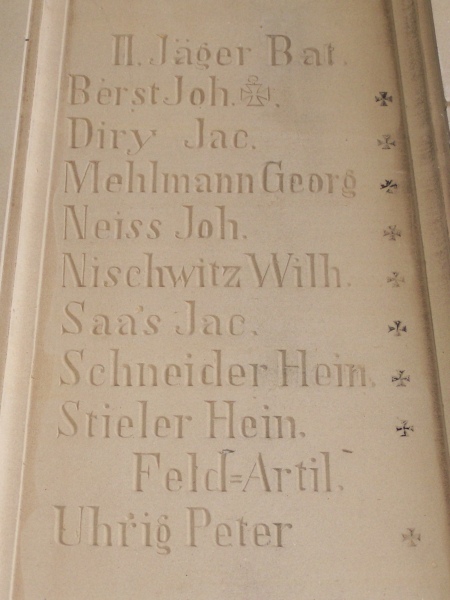 II. Jäger Bat.
Berst Joh. ✠.
Diry Jac.
Mehlmann Georg
Neiss Joh.
Nischwitz Wilh.
Saas Jac.
Schneider Hein.
Stieler Hein.
Feld=Artil.
Uhrig Peter